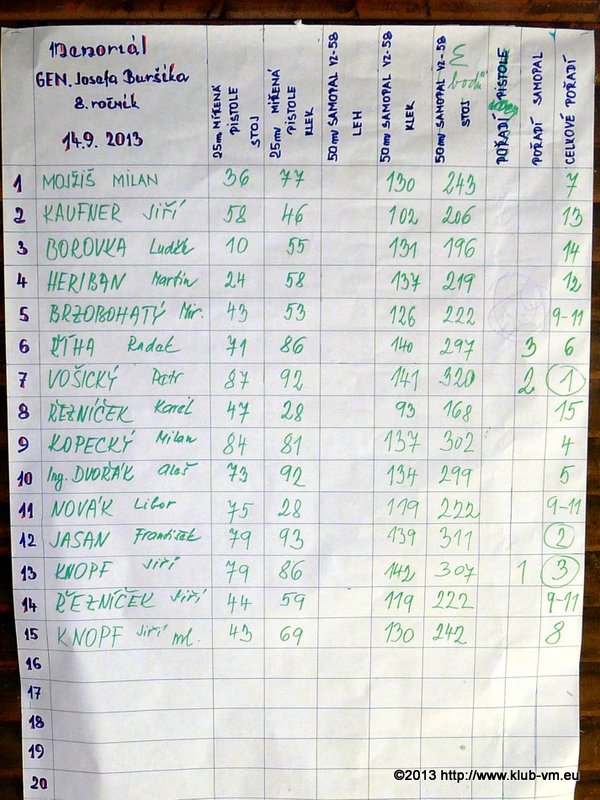 Memoriál
GEN. Josefa Buršíka
8. ročník
14.9. 2013
25m MÍŘENÁ PISTOLE STOJ
25m MÍŘENÁ PISTOLE KLEK
50m SAMOPAL VZ-58 LEH
50m SAMOPAL VZ-58 KLEK
50m SAMOPAL VZ-58 STOJ
Σ bodů
POŘADÍ PISTOLE
POŘADÍ SAMOPAL
CELKOVÉ POŘADÍ
1 MOJŽIŠ MILAN 36 77 130 243 7
2 KAUFNER Jiří 58 46 102 206 13
3 BOROVKA Luděk 10 55 131 196 14
4 HERIBAN Martin 24 58 137 219 12
5 BRZOBOHATÝ Mir. 43 53 126 222 9-11
6 ŘÍHA Radek 71 86 140 297 3 6
7 VOŠICKÝ Petr 87 92 141 320 2 1
8 ŘEZNÍČEK Karel 47 28 93 168 15
9 KOPECKÝ Milan 84 81 137 302 4
10 Ing. DVOŘÁK Aleš 73 92 134 299 5
11 NOVÁK Libor 75 28 119 222 9-11
12 JASAN František 79 93 139 311 2
13 KNOPF Jiří 79 86 142 307 1 3
14 ŘEZNÍČEK Jiří 44 59 119 222 9-11
15 KNOPF Jiří ml. 43 69 130 242 8
16
17
18
19
20
©2013 http://www.klub-vm.eu